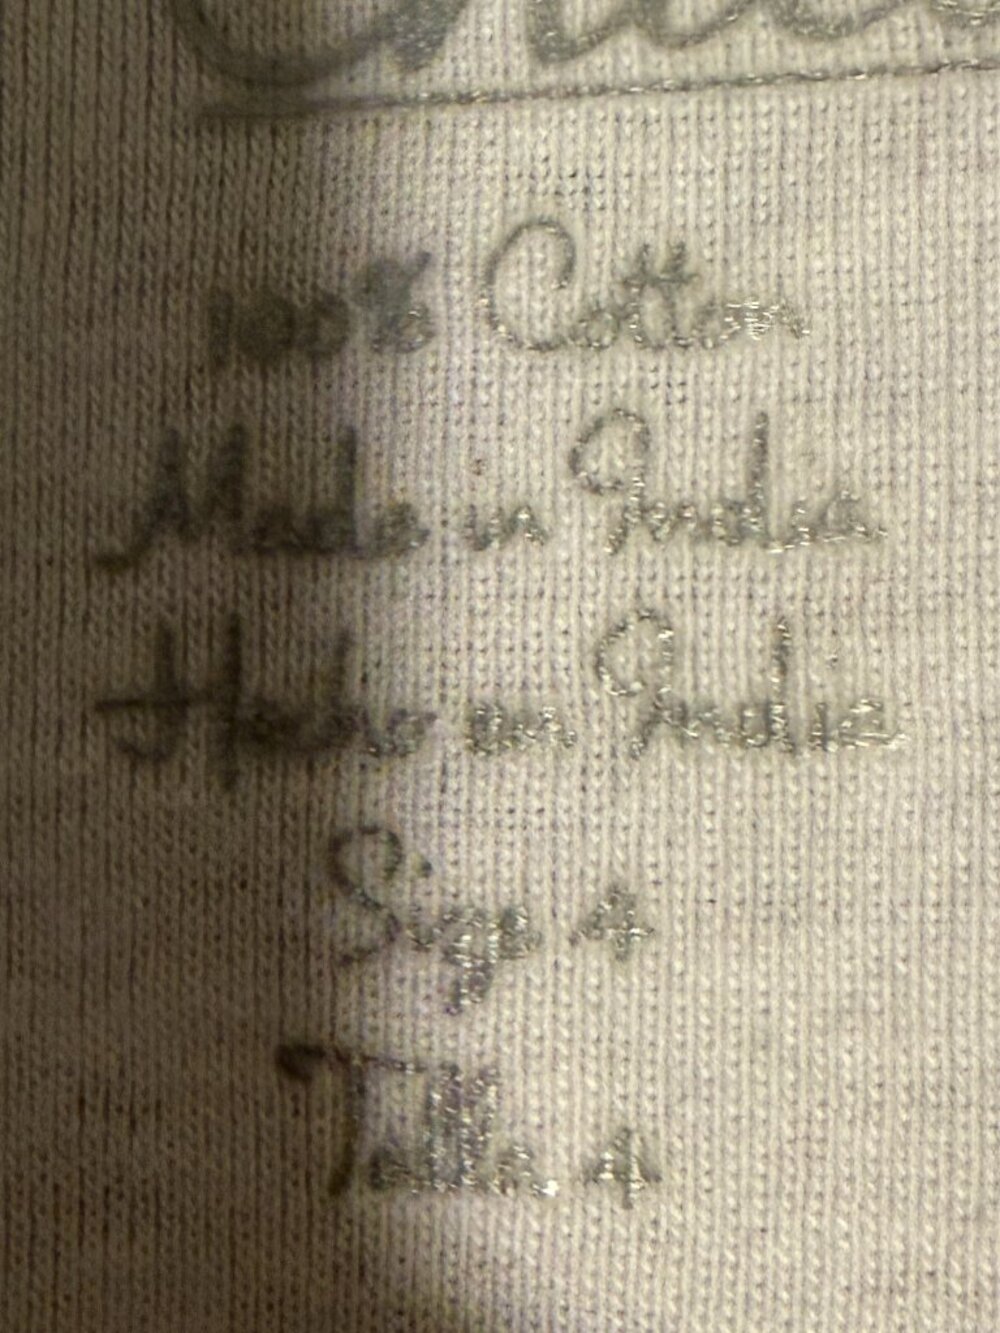 100% Cotton
Made in India
Hecho en India
Size 4
Talla 4